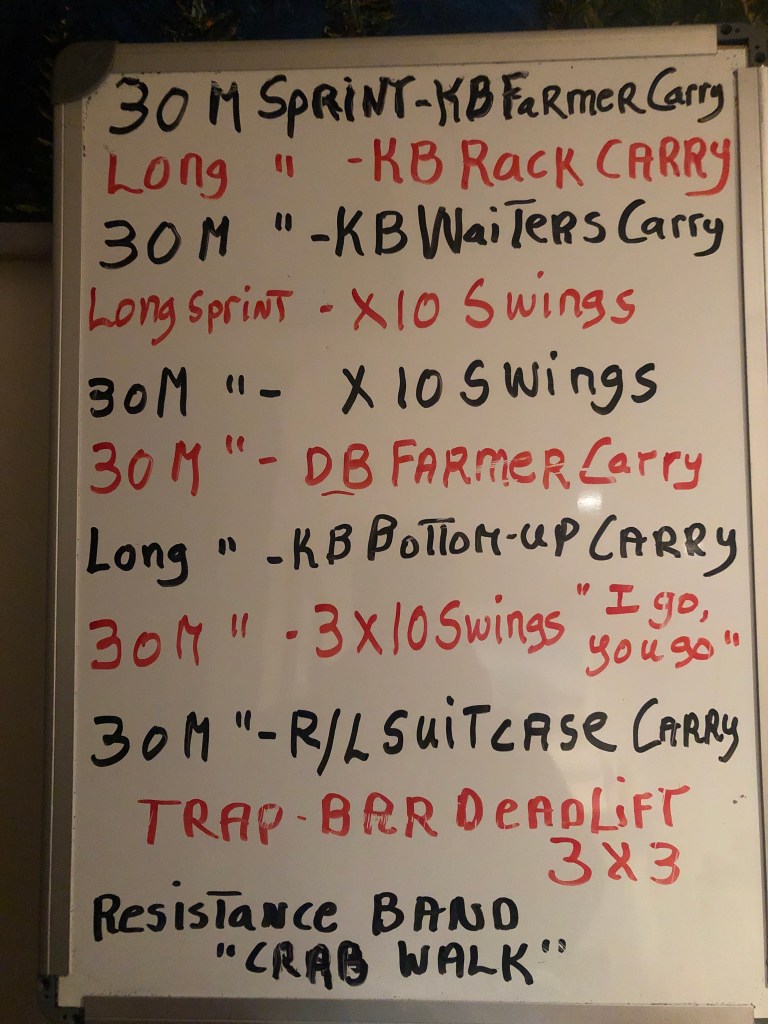 30 M SPRINT-KB FaRmeR Carry
Long " -KB Rack CARRY
30 M " -KB WaiTeRs Carry
Long Sprint - X10 Swings
30M " - X10 Swings
30 M " - DB FARmER Carry
Long " -KB BoTTom-uP CARRY
30 M " - 3 X 10 Swings "I go,
you go"
30M "-R/L SuiTcAse CARRY
TRAP-BAR DeADLiFT
3 X 3
ResisTance BAND
"CRAB WALK"